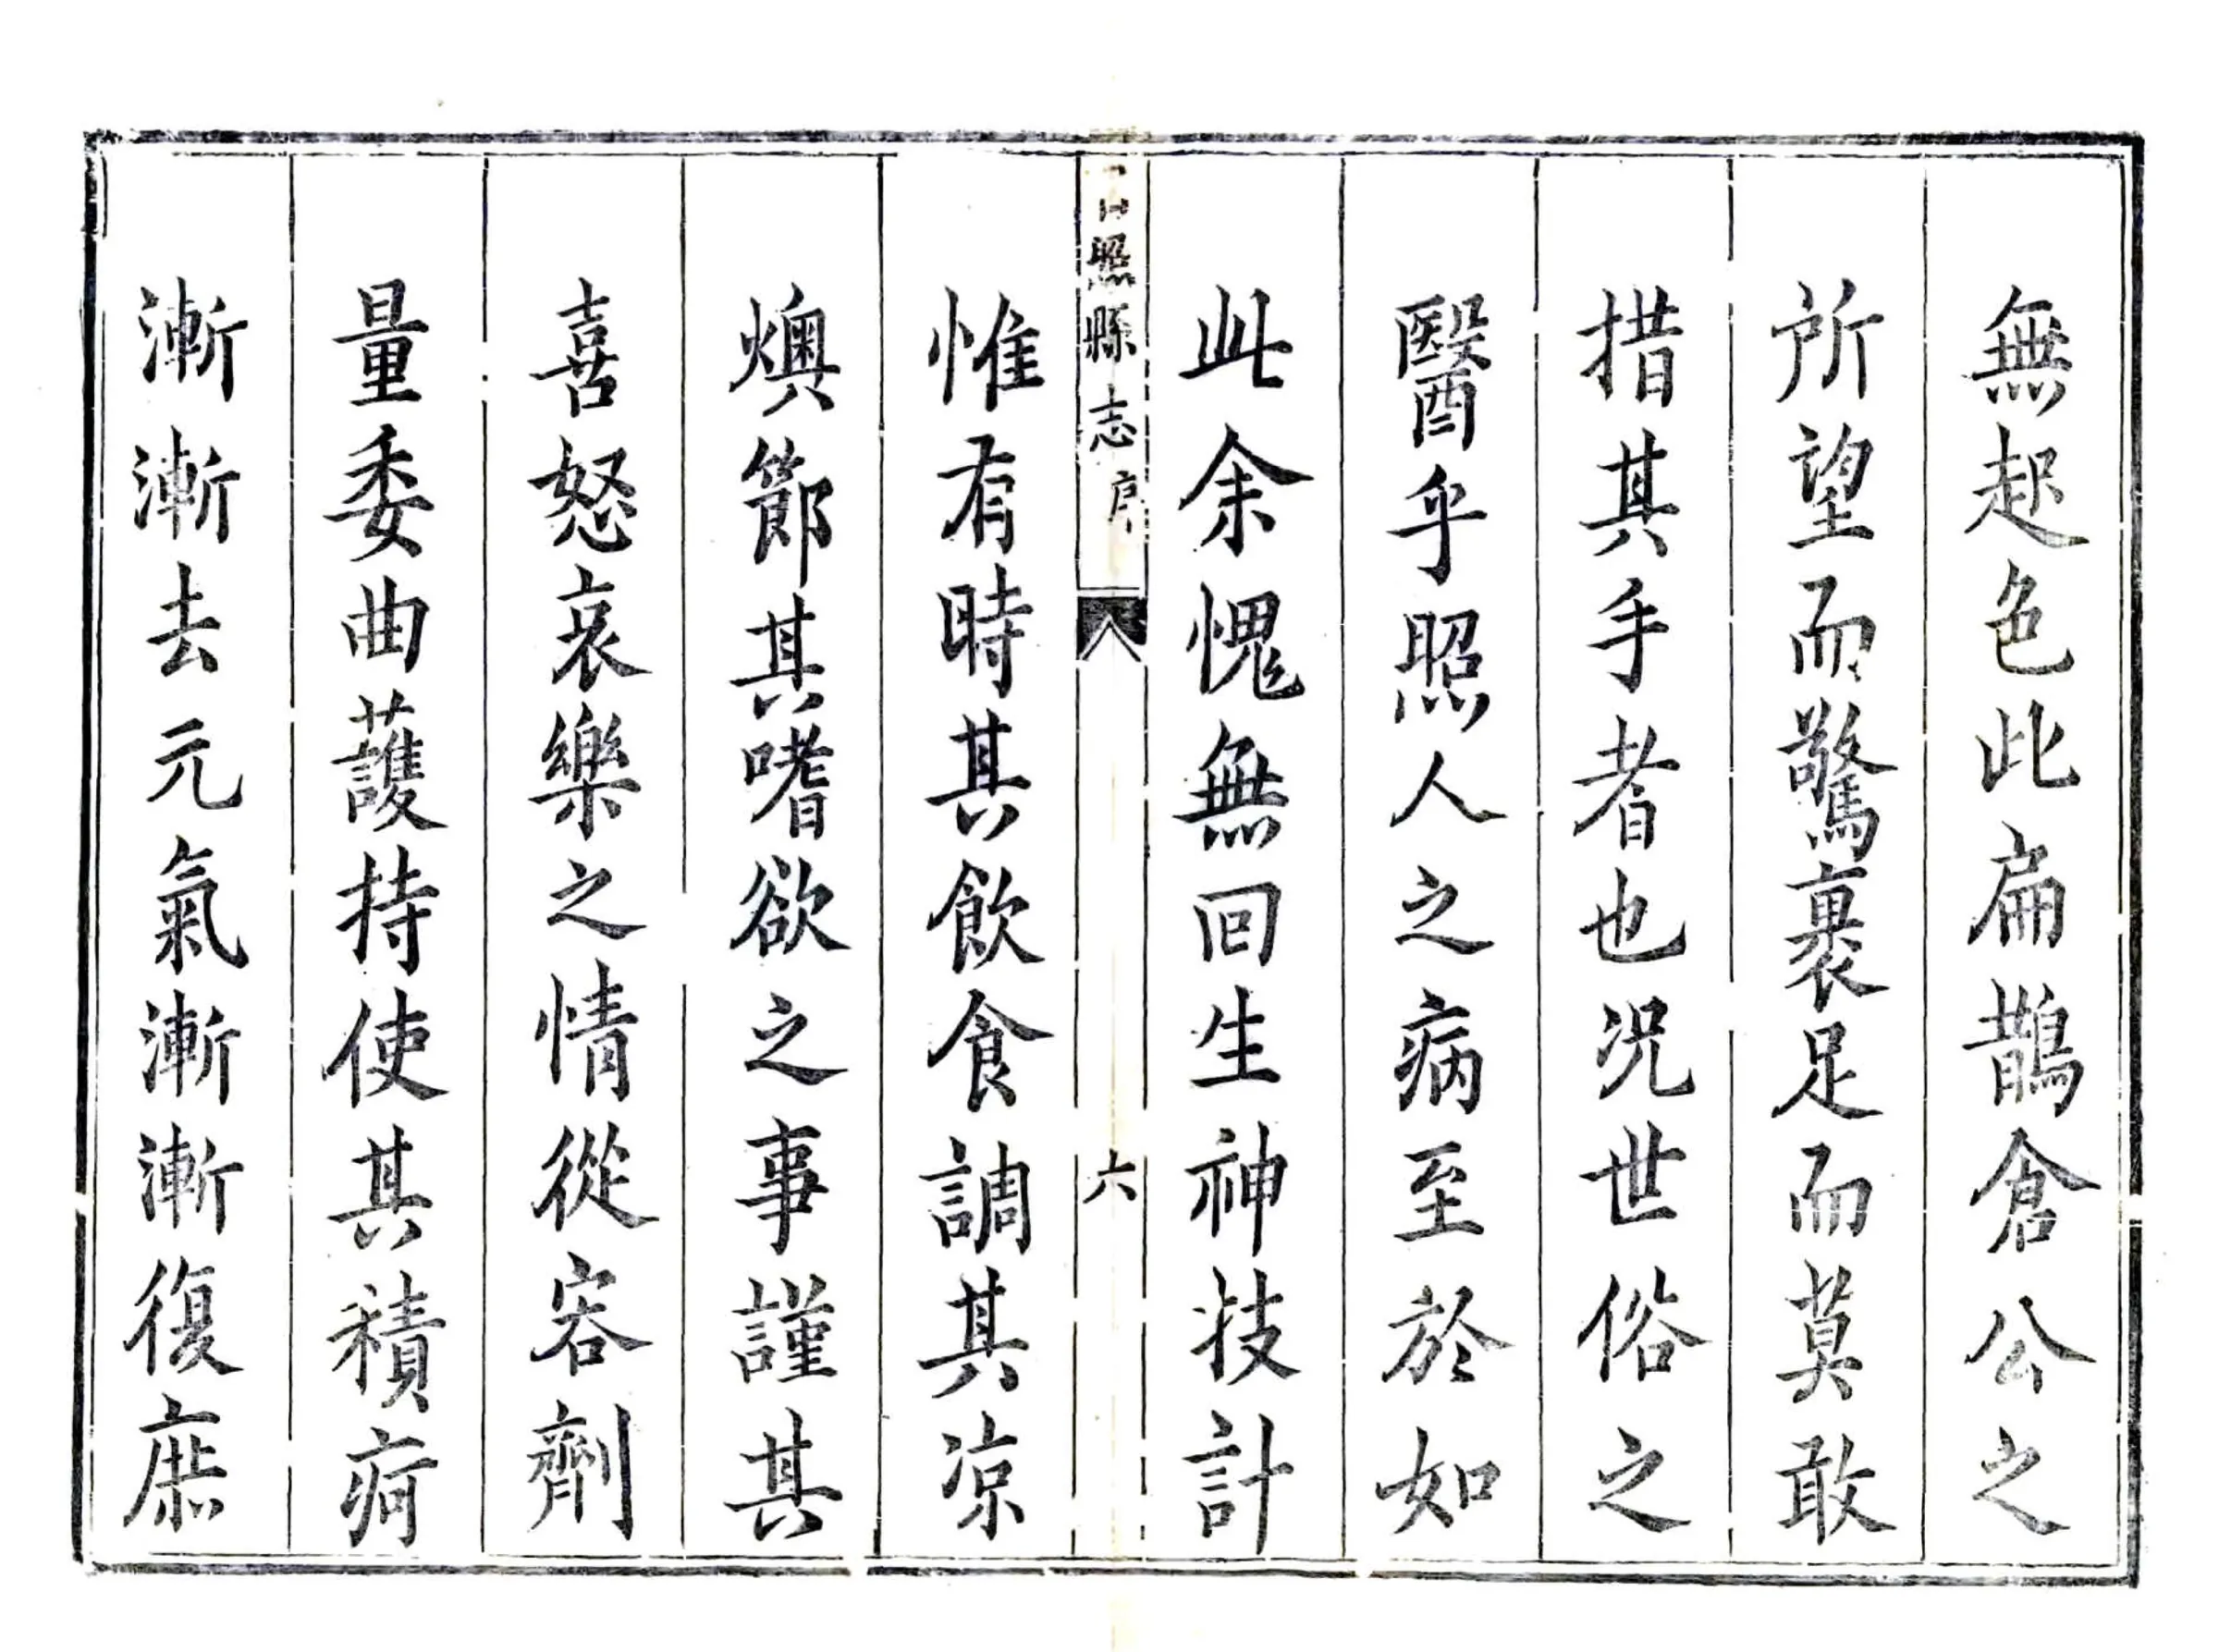 無起色此扁鵲倉公之
所望而驚裹足而莫敢
措其手者也况世俗之
醫乎照人之病至於如
此余愧無回生神技計
日照縣志 序 六
惟有時其飲食調其凉
燠節其嗜欲之事謹其
喜怒哀樂之情從容劑
量委曲護持使其積疴
漸漸去元氣漸漸復庶